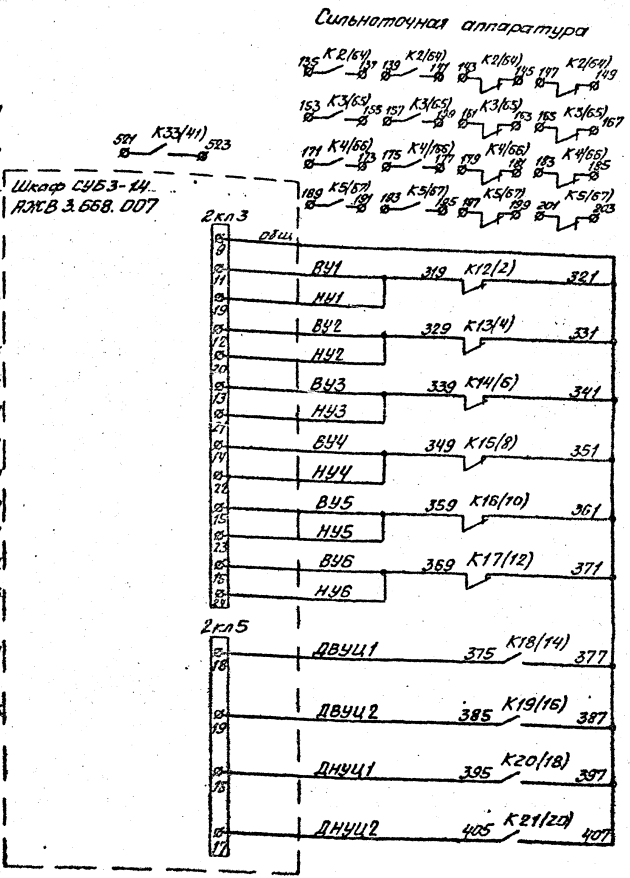 Сильноточная аппаратура
135 К2/64) 137 139 К2/64) 141 143 К2/64) 145 147 К2/64) 149
153 К3/65) 155 157 К3/65) 159 161 К3/65) 163 165 К3/65) 167
171 К4/66) 173 175 К4/66) 177 179 К4/66) 181 183 К4/66) 185
189 К5/67) 191 193 К5/67) 195 197 К5/67) 199 201 К5/67) 203
521 К33/41) 523
Шкаф СУБЗ-14
ЯЖВ 3.668.007
2кл3
9 общ
11 ВУ1 319 К12/2) 321
19 НУ1
12 ВУ2 329 К13/4) 331
20 НУ2
13 ВУ3 339 К14/6) 341
21 НУ3
14 ВУ4 349 К15/8) 351
22 НУ4
15 ВУ5 359 К16/10) 361
23 НУ5
16 ВУ6 369 К17/12) 371
24 НУ6
2кл5
18 ДВУЦ1 375 К18/14) 377
19 ДВУЦ2 385 К19/16) 387
ДНУЦ1 395 К20/18) 397
17 ДНУЦ2 405 К21/20) 407